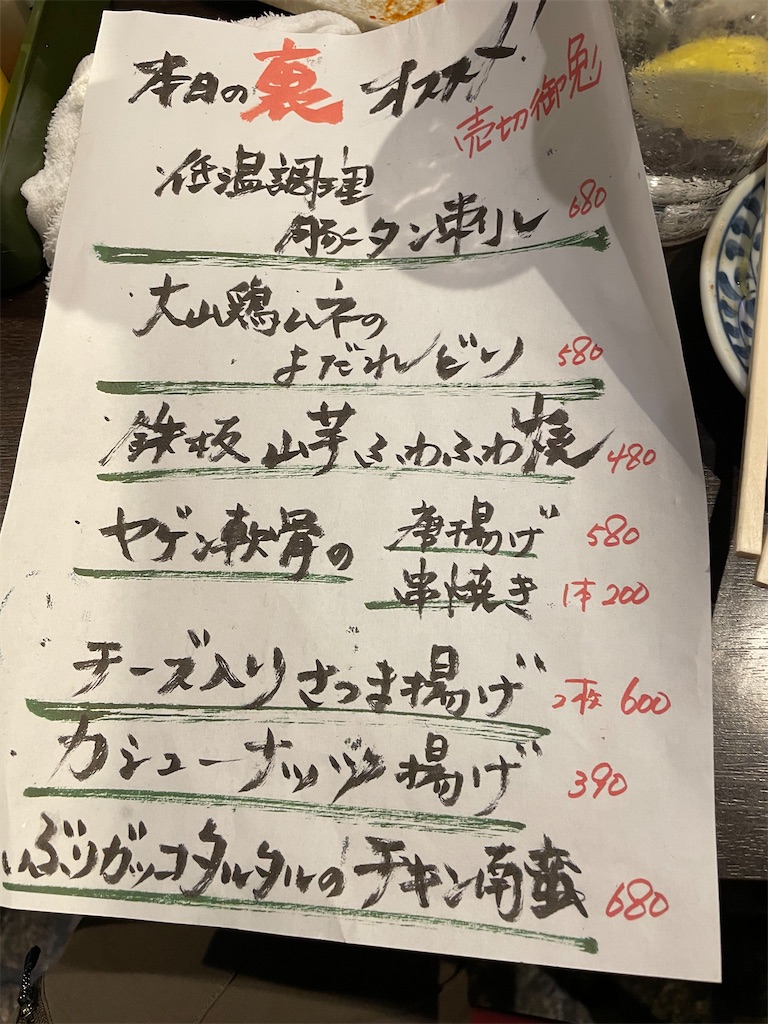 本日の裏オススメ!!
売切御免
低温調理
豚タン刺し 680
大山鶏ムネの
よだれどり 580
鉄板 山芋ふわふわ焼 480
ヤゲン軟骨の 唐揚げ 580
串焼き 1本 200
チーズ入りさつま揚げ 2枚 600
カシューナッツ揚げ 390
いぶりガッコタルタルのチキン南蛮 680